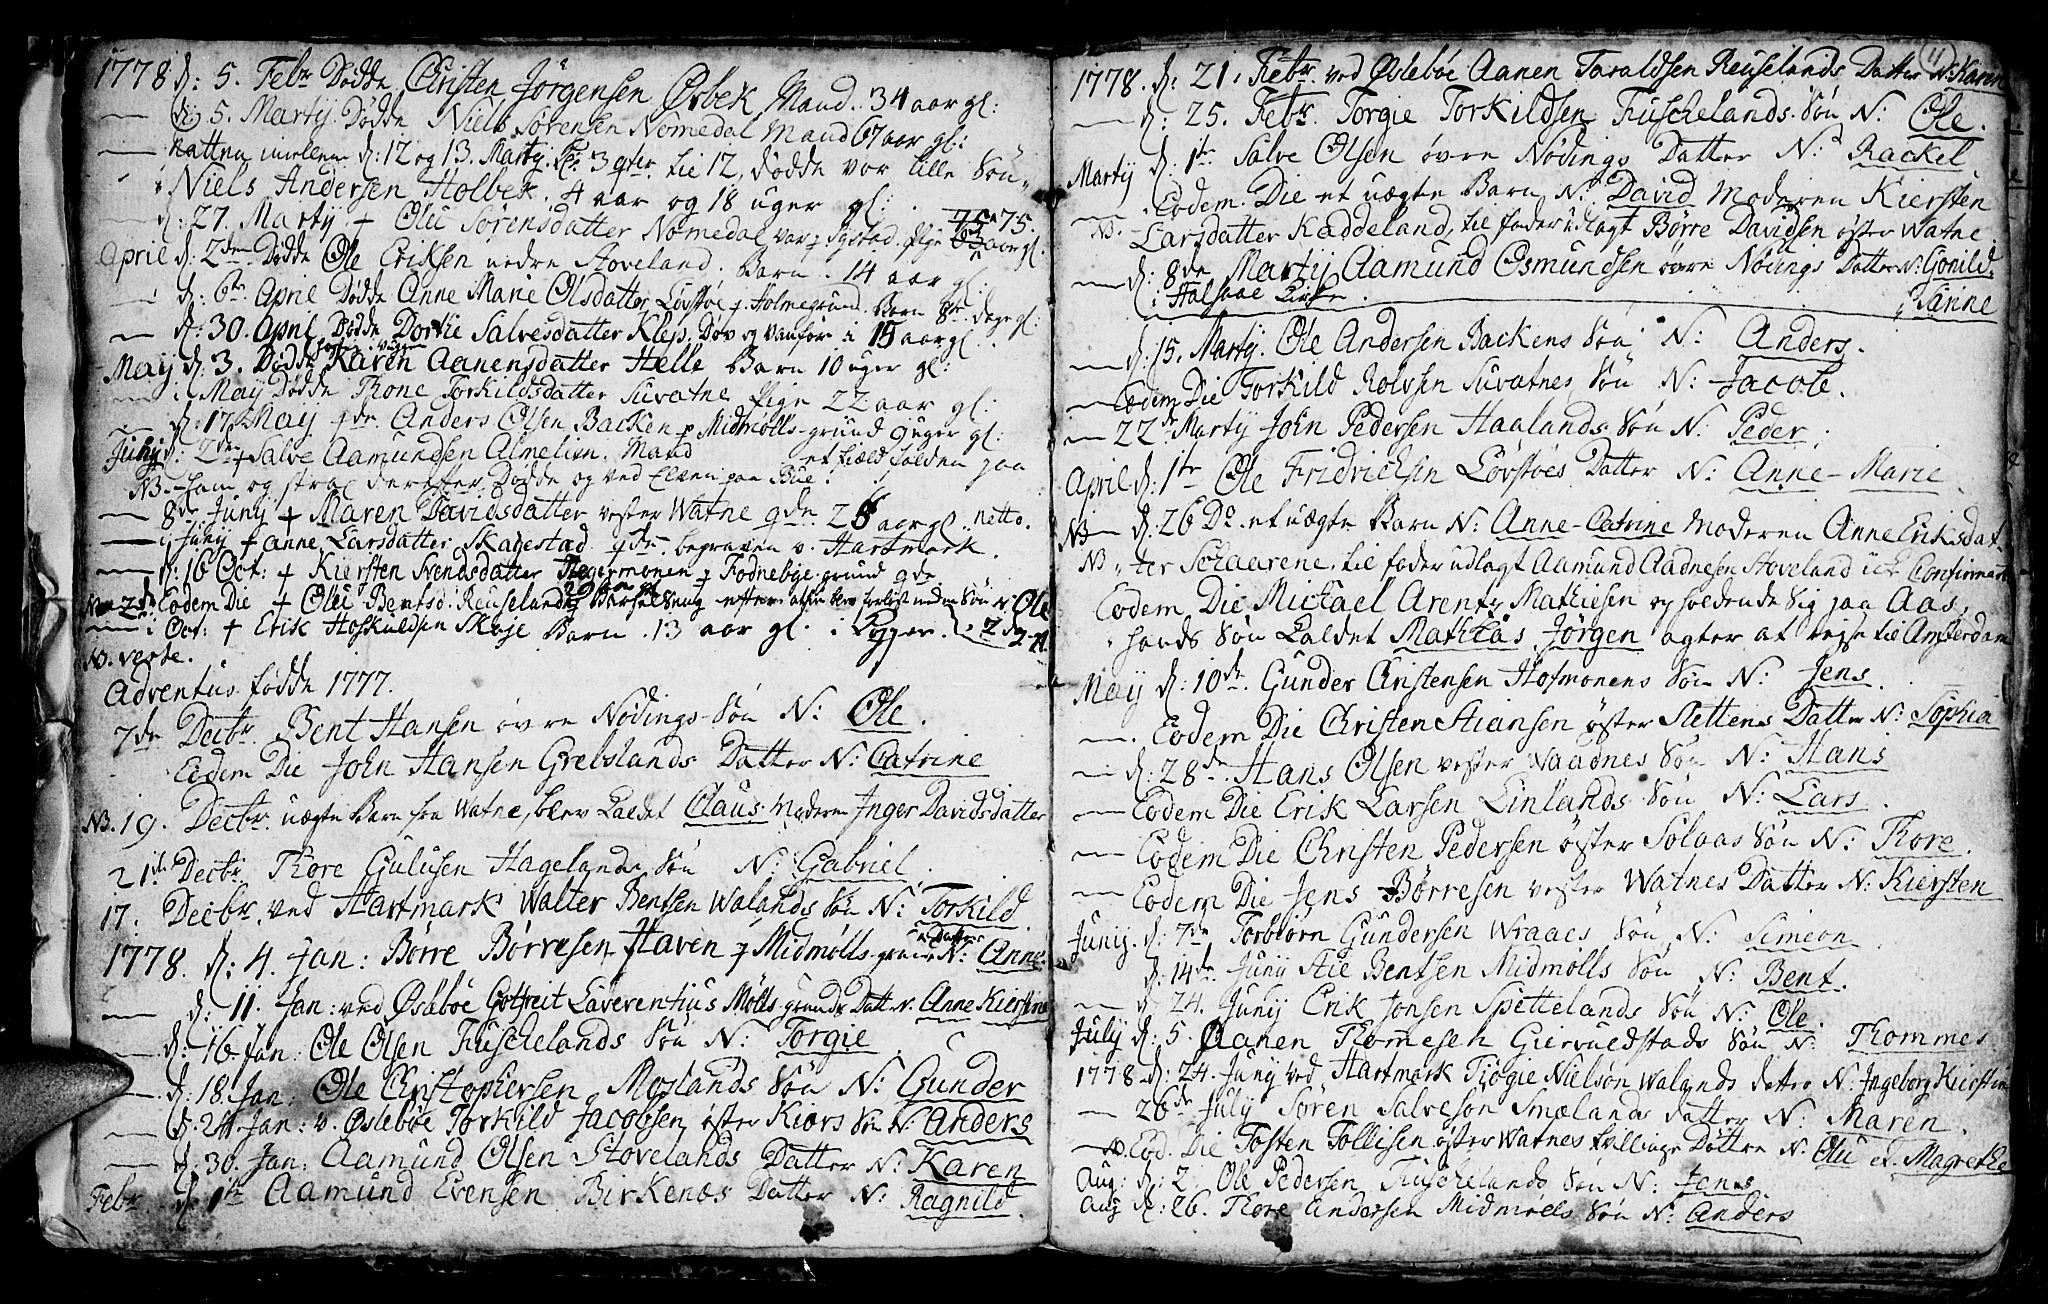 1778 d: 5. Febr Dødde Christen Jörgensen Øybek Mand. 34 aar gl:
d: 5. Martij. Dødde Niels Sørensen Nomedal Mand 67 aar gl:
Natten imellem d: 12 og 13. Martij. Kl: 3 qter. til 12, dødde vor lille Søn
Niels Andersen Holbek. 4 aar og 18 uger gl:
d: 27. Martij + Olu Sørensdatter Nomedal var f. Pige 75 aar gl.
April d: 2den Dødde Ole Eriksen nedre Stoveland. Barn. 14 aar gl:
d: 6te April Dødde Anne Marie Olsdatter Løvstøe p. Holmegrund. Barn 8te dage gl:
d: 30. April Dødde Dortie Salvesdatter Klep. Døv og Vanfør i 15 aar gl.
May d: 3. Dødde Karen Aanensdatter Helle Barn 10 uger gl:
i May Dødde Thone Torkildsdatter Suvatne Pige 22 aar gl:
d: 17. May Anders Olsen Bakken p Midmølls-grund 9 uger gl:
Junij d: 2den + Salve Aamundsen Almelien. Mand et field falden paa
NB. ham og strax derefter Dødde og ved Elven paa Bue.
8de Junij + Maren Davidsdatter vester Watne 25 aar gl. netto.
i Junij + Anne Larsdatter Skarestad begraven v. Hartmark.
d: 16 Oct: + Kiersten Svendsdatter p Fodnebye-grund
Eodem Die + Olu Bentsd: Reuseland Barselseng efter Søn N: Ole
i Oct: + Erik Hoskuldsen Skøje Barn. 13 aar gl. i Lyger.
NB. verte.
Adventus. fødde 1777.
7de Decbr Bent Hansen övre Nødings Søn N: Ole.
Eodem Die John Hansen Grebslands Datter N: Catrine
NB. 19. Decbr uægte Barn fra Watne, blev kaldet Claus. Moderen Inger Davidsdatter
21de Decbr. Thore Gulusen Hagelands Søn N: Gabriel.
17. Decbr. ved Hartmark Walter Bentsen Walands Søn N: Torkild
1778. d: 4. Jan: Børre Børresen Haven p Midmølls-grund Datter N: Anne.
d: 11. Jan: ved Øslebøe Gotfreit Laverentius Mølls-grunds Datt: N. Anne Kierstine
d: 16. Jan: Ole Olsen Fuschelands Søn N: Torgie
d: 18. Jan: Ole Christophersen Moslands Søn N: Gunder
d: 24. Jan: v. Øslebøe Torkild Jacobsen øster Kiørs Søn N: Anders
d: 30. Jan: Aamund Olsen Stovelands Datter N: Karen
Febr. d: 1te Aamund Evensen Birkenæs Datter N: Ragnild.
11
1778. d: 21. Febr. ved Øslebøe Aanen Taraldsen Reuselands Datter N: Karen
d: 25. Febr. Torgie Torkildsen Fuschelands Søn N: Ole.
Martij d: 1te Salve Olsen övre Nødings Datter N: Rackel
Eodem Die et uægte Barn N: David Moderen Kiersten
NB. Larsdatter Kaddeland, til fader udlagt Børre Davidsen øster Watne
d: 8de Martij Aamund Osmundsen övre Nødings Datter N: Gonild.
i Halsaae Kirke. Sanne
d: 15. Martij. Ole Andersen Backens Søn N: Anders.
Eodem Die Torkild Rolvsen Suvatnes Søn N: Jacob.
22de Martij John Pedersen Haalands Søn N: Peder.
April d: 1te Ole Fridrichsen Løvstøes Datter N: Anne-Marie
NB d: 26 Do et uægte Barn N: Anne-Catrine Moderen Anne Eriksdat-
NB ter Selaarene, til fader udlagt Aamund Aadnesen Stoveland
Eodem Die Mickael Arentz Mathiesen opholdende sig paa Aas,
hands Søn kaldet Mathias Jørgen agter at rejse til Amsterdam
May d: 10de Gunder Christensen Hofmonens Søn N: Jens.
Eodem Die Christen Stiansen øster Slettenes Datter N: Sophia
d: 28de Hans Olsen vester Waadnes Søn N: Hans
Eodem Die Erik Larsen Linlands Søn N: Lars.
Eodem Die Christen Pedersen øster Solaas Søn N: Thore.
Eodem Die Jens Børresen vester Watnes Datter N: Kiersten
Junij. d: 7de Torbiørn Gundersen Wraaes Søn N: Simeon
d: 14de Junij Aie Bentsen Midmølls Søn N: Bent.
d 24. Junij Erik Jonsen Spettelands Søn N: Ole.
July d: 5. Aanen Thomesen Giervueldstads Søn N: Thommes
1778 d: 24. Junij ved Hartmark Tiøgie Nielsøn Walands datter N: Ingeborg Kirstine
26de July Søren Salvesøn Smælands datter N: Maren.
Eod. Die Tosten Tollisen øster Watnes tvillinge Døttre N: Olu et. Magrethe
Aug: d: 2. Ole Pedersen Fuschelands Søn N: Jens
Aug d: 26. Thore Andersen Midmølls Søn N: Anders